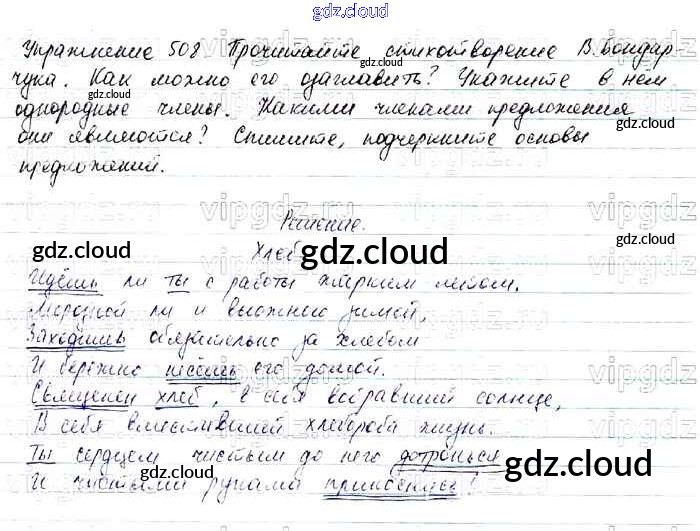 gdz.cloud
Упражнение 508 Прочитайте стихотворение В. Бондар-
чука. Как можно его озаглавить? Укажите в нём
однородные члены. Какими членами предложения
они являются? Спишите, подчеркните основы
предложений.
gdz.cloud
gdz.cloud
gdz.cloud
vipgdz.ru
Решение.
Хлеб
gdz.cloud
gdz.cloud
Идёшь ли ты с работы жарким летом.
Морозной ли и вьюжною зимой,
Заходишь обязательно за хлебом
И бережно несёшь его домой.
gdz.cloud
gdz.cloud
Священен хлеб, в себя вобравший солнце,
В себя вместивший хлебороба жизнь.
Ты сердцем чистым до него дотронься
И чистыми руками прикоснись!
gdz.cloud
gdz.cloud
gdz.cloud